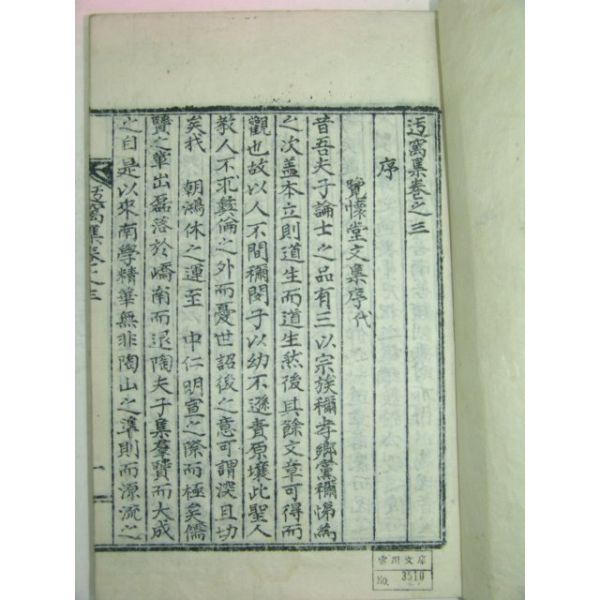 迃窩集卷之三
序
覽懷堂文集序代
昔吾夫子論士之品有三以宗族稱孝鄕黨稱悌爲
之次盖本立則道生而道生然後其餘文章可得而
觀也故以人不間稱閔子以幼不遜責原壤此聖人
敎人不求彝倫之外而憂世詔後之意可謂深且切
矣我　朝鴻休之運至　中仁明宣之際而極矣儒
賢之輩出磊落於嶠南而退陶夫子集羣賢而大成
之自是以來南學精華無非陶山之準則而源流之
窩集卷之三
一
雲川文庫
No. 3510